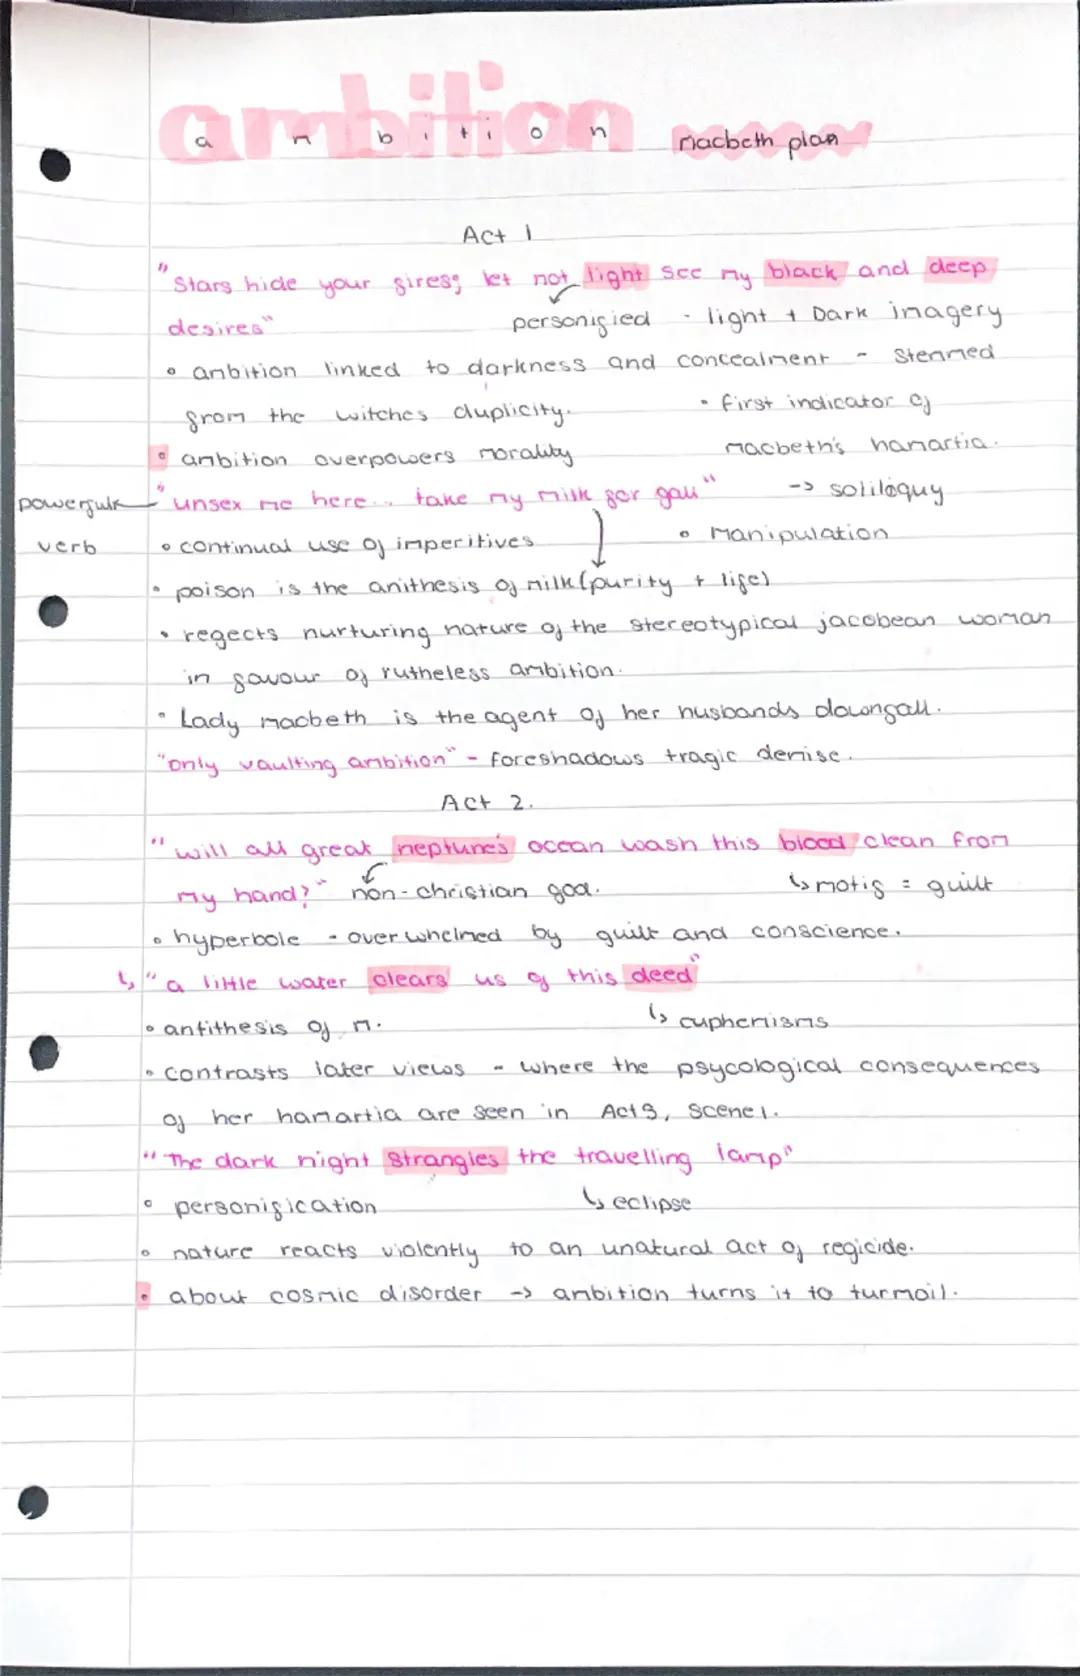 ambition
a m b i t i o n macbeth plan
Act 1
"Stars hide your fires; let not light see my black and deep
desires" personified - light + Dark imagery
• ambition linked to darkness and concealment - Stemmed
from the witches duplicity. • first indicator of
• ambition overpowers morality macbeth's hamartia.
powerful verb "unsex me here... take my milk for gall" -> soliloquy
• continual use of imperitives • Manipulation
• poison is the anithesis of milk (purity + life)
• regects nurturing nature of the stereotypical jacobean woman
in favour of rutheless ambition.
• Lady macbeth is the agent of her husbands downfall.
"only vaulting ambition" - foreshadows tragic demise.
Act 2.
"will all great neptune's ocean wash this blood clean from
my hand?" non-christian god. ↳ motif = guilt
• hyperbole - overwhelmed by guilt and conscience.
↳ "a little water clears us of this deed"
• antithesis of m. ↳ euphemisms
• contrasts later views - where the psycological consequences
of her hamartia are seen in Act 5, Scene 1.
"The dark night strangles the travelling lamp"
• personification ↳ eclipse
• nature reacts violently to an unatural act of regicide.
• about cosmic disorder -> ambition turns it to turmoil.